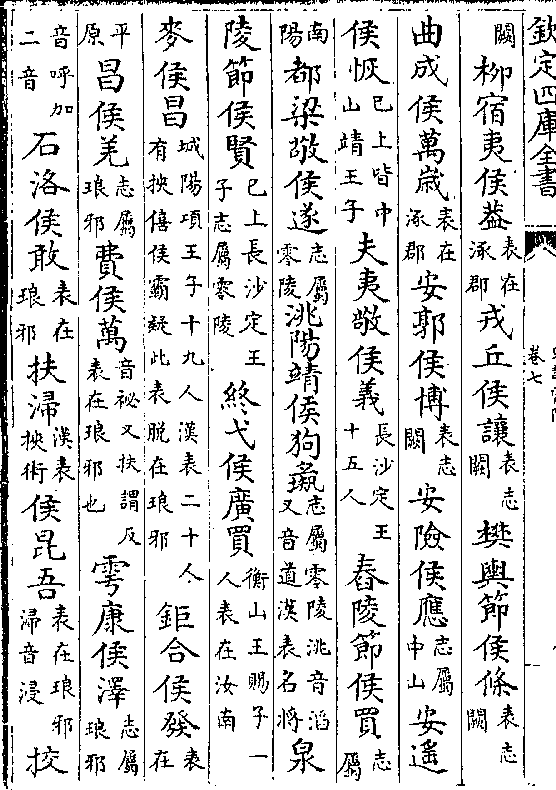 欽定四庫全書
卷七
闕 柳宿夷侯葢 表在涿郡 戎丘侯讓 表志闕 樊輿節侯條 表志闕
曲成侯萬歲 表在涿郡 安郭侯博 表志闕 安險侯應 志屬中山 安遥
侯恢 已上皆中山靖王子 夫夷敬侯義 長沙定王十五人 舂陵節侯買 志屬
南陽 都梁敬侯遂 志屬零陵 洮陽靖侯狗彘 志屬零陵洮音滔又音道漢表名將 泉
陵節侯賢 已上長沙定王子志屬零陵 終弋侯廣買 衡山王賜子一人表在汝南
麥侯昌 城陽項王子十九人漢表二十人有挾僖侯霸疑此表脱在琅邪 鉅合侯發 表在
平原 昌侯羌 志屬琅邪 費侯萬 音祕又扶謂反表在琅邪也 雩康侯澤 志屬琅邪
音呼加二音 石洛侯敢 表在琅邪 扶㴆 漢表挾術 侯昆吾 表在琅邪㴆音浸 挍